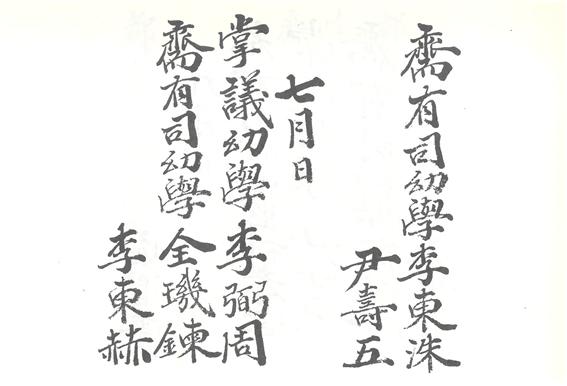 齋有司幼學李東洙
尹壽五
七月日
掌議幼學李弼周
齋有司幼學全璣鍊
李東赫